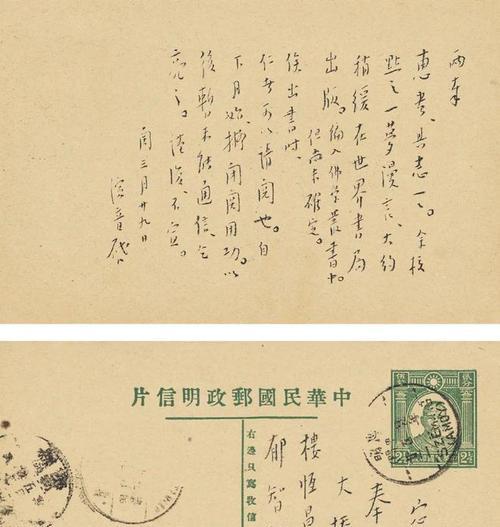 兩奉
惠書、具志一一。余校
點之一夢漫言、大約
稍緩在世界書局
出版。編入佛學叢書中。
但尚未確定。
俟出書時、
仁者可以請閱也。自
下月始、擬閉關用功。以
後暫未能通信、乞
亮之。清淡、不宣。
閏三月廿九日
演音啓
中華民國郵政明信片
右邊只寫收信
樓恆昌
郁智
大
奉